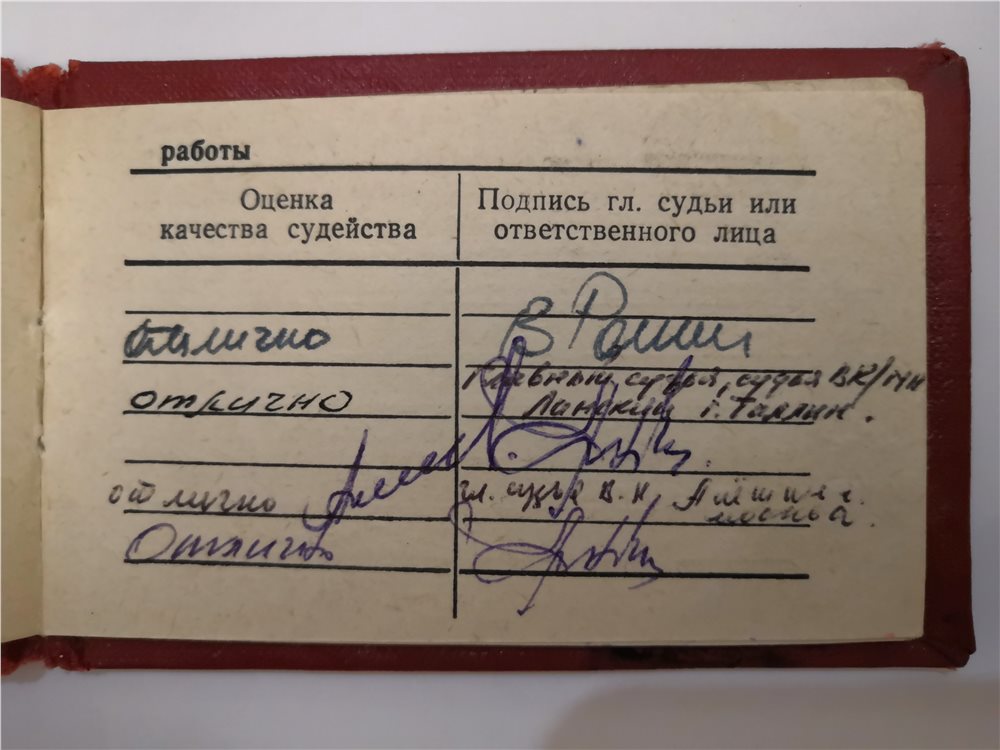 работы
Оценка
качества судейства
Подпись гл. судьи или
ответственного лица
отлично
отлично
Главный судья, судья ВК/МК
Ланский г. Таллин.
отлично
гл. судья В.К. Алёшин г.
Москва.
Отлично